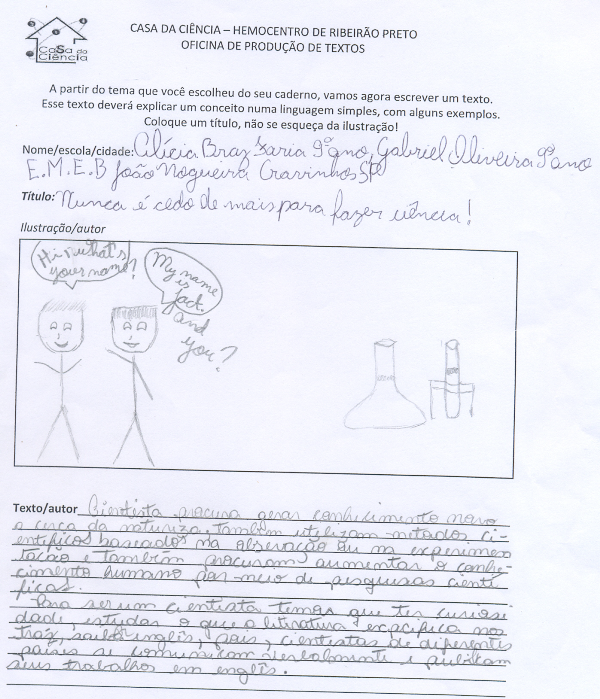 CaSa da
Ciência
CASA DA CIÊNCIA – HEMOCENTRO DE RIBEIRÃO PRETO
OFICINA DE PRODUÇÃO DE TEXTOS
A partir do tema que você escolheu do seu caderno, vamos agora escrever um texto.
Esse texto deverá explicar um conceito numa linguagem simples, com alguns exemplos.
Coloque um título, não se esqueça da ilustração!
Nome/escola/cidade: Alícia Braz Faria 9º ano, Gabriel Oliveira 9º ano
E.M.E.B João Nogueira Cravinhos, SP
Título: Nunca é cedo de mais para fazer ciência!
Ilustração/autor
Hi! What's
your name?
My name
is
Jack.
and
you?
Texto/autor Cientista procura gerar conhecimento novo
a cerca da natureza, também utilizam métodos ci-
entíficos baseados na observação ou na experimen
tação e também procuram aumentar o conhe-
cimento humano por meio de pesquisas cientí
ficas.
Para ser um cientista temos que ter curiosi
dade, estudar o que a literatura específica nos
traz, saber inglês, pois, cientistas de diferentes
países se comunicam verbalmente e publicam
seus trabalhos em englis.